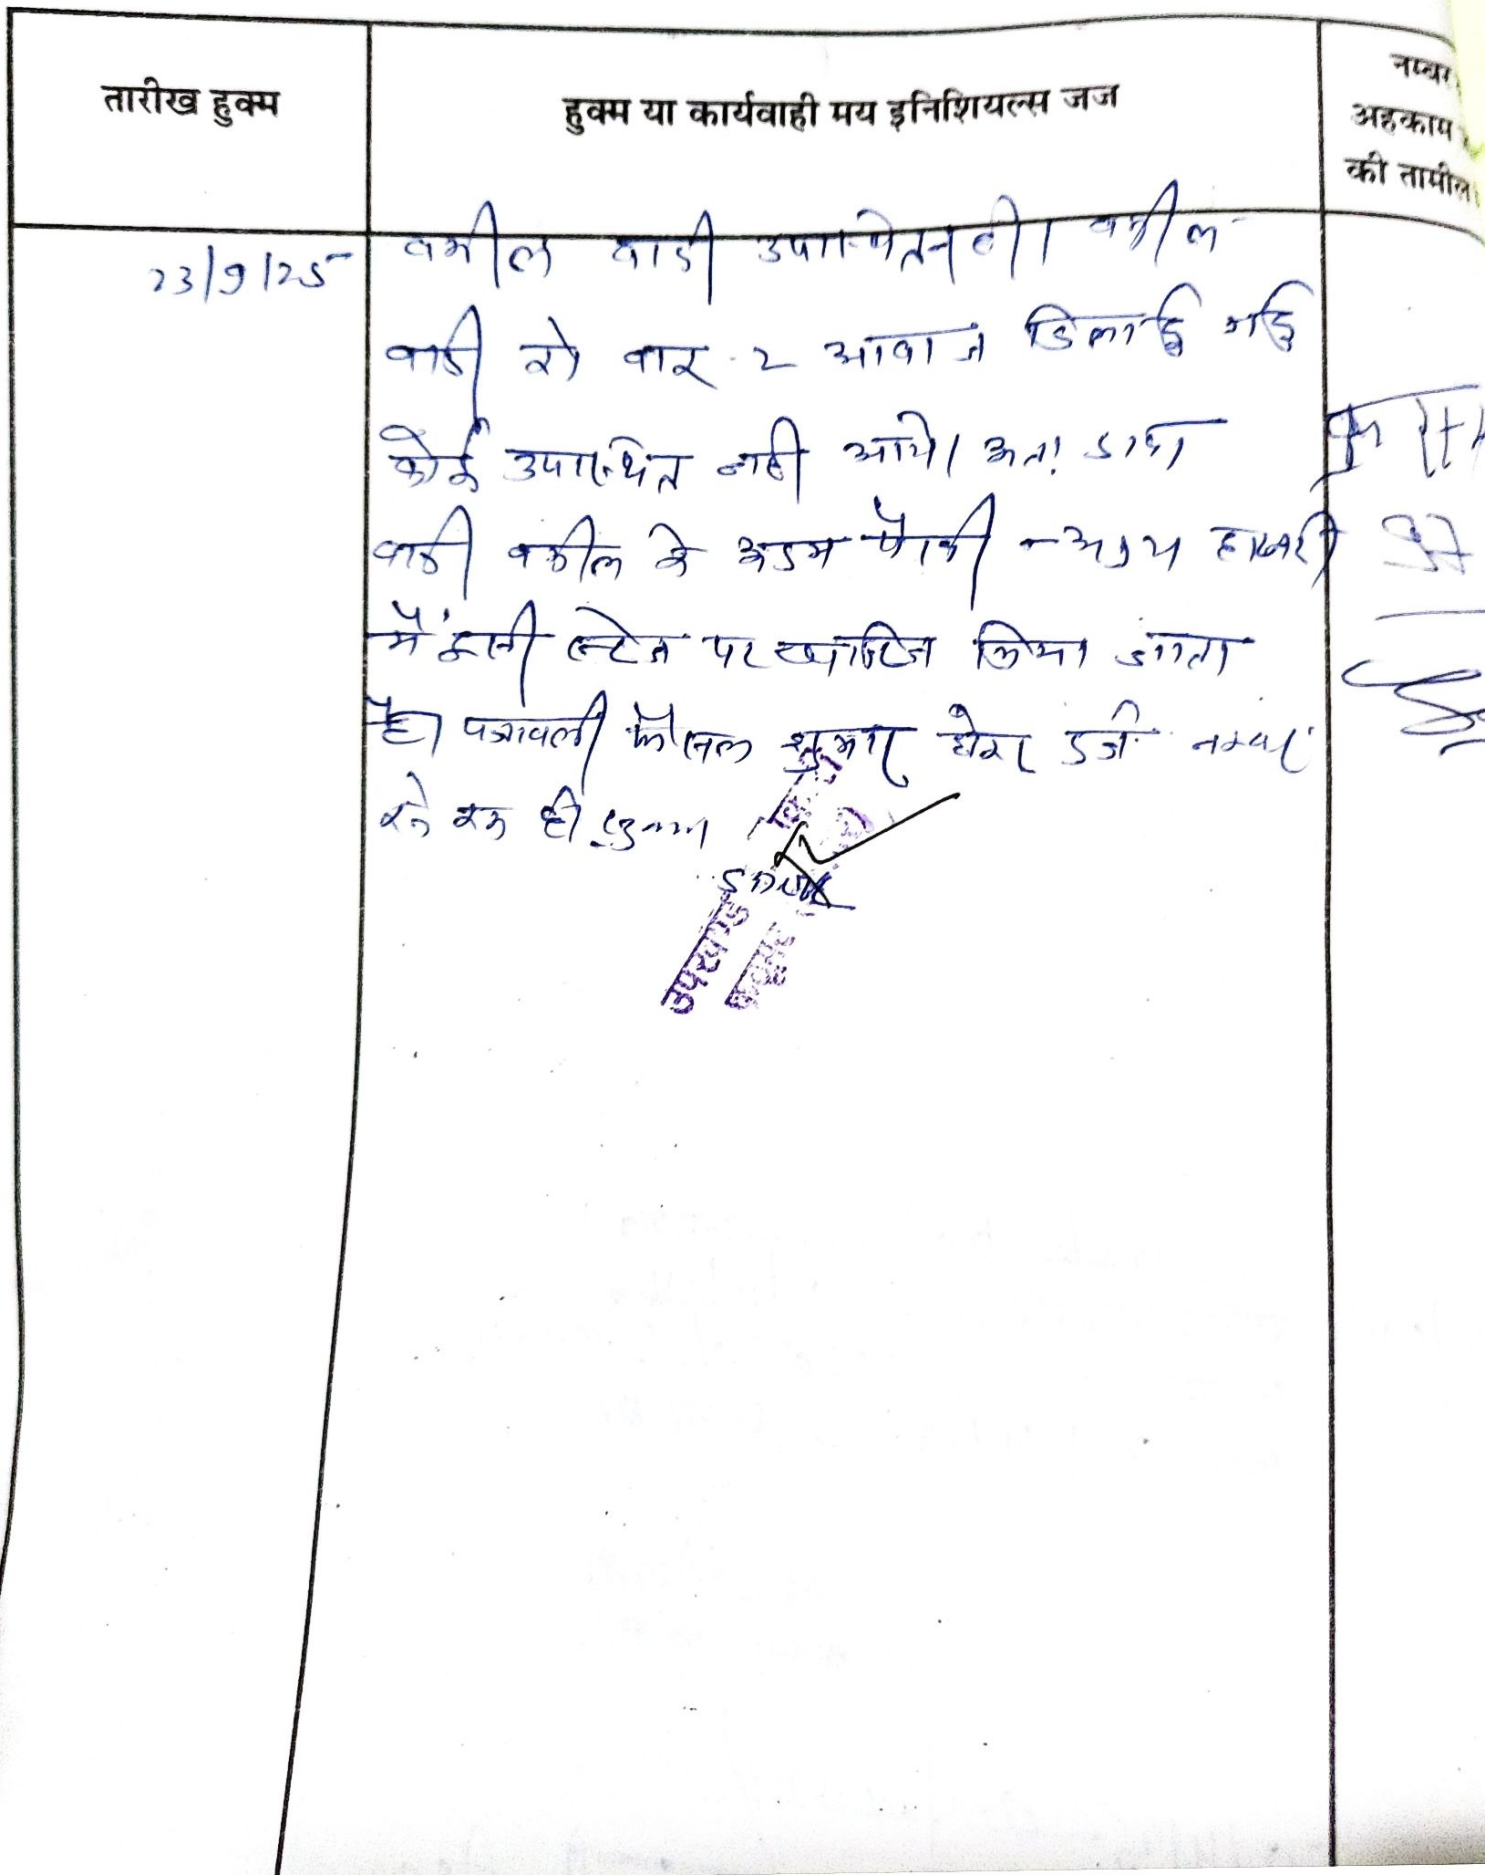 तारीख हुक्म
हुक्म या कार्यवाही मय इनिशियल्स जज
नम्बर
अहकाम
की तामील
23/9/25
वकील वादी उपस्थित नही। वकील
वादी को बार-2 आवाज दिलाई गई
कोई उपस्थित नही आये। अतः दावा
वादी वकील के अदम पैरवी हाजरी
में इसी स्टेज पर खारिज किया जाता
है। पत्रावली फैसल शुमार होकर दर्ज नम्बर
से कम हो।
उपखण्ड